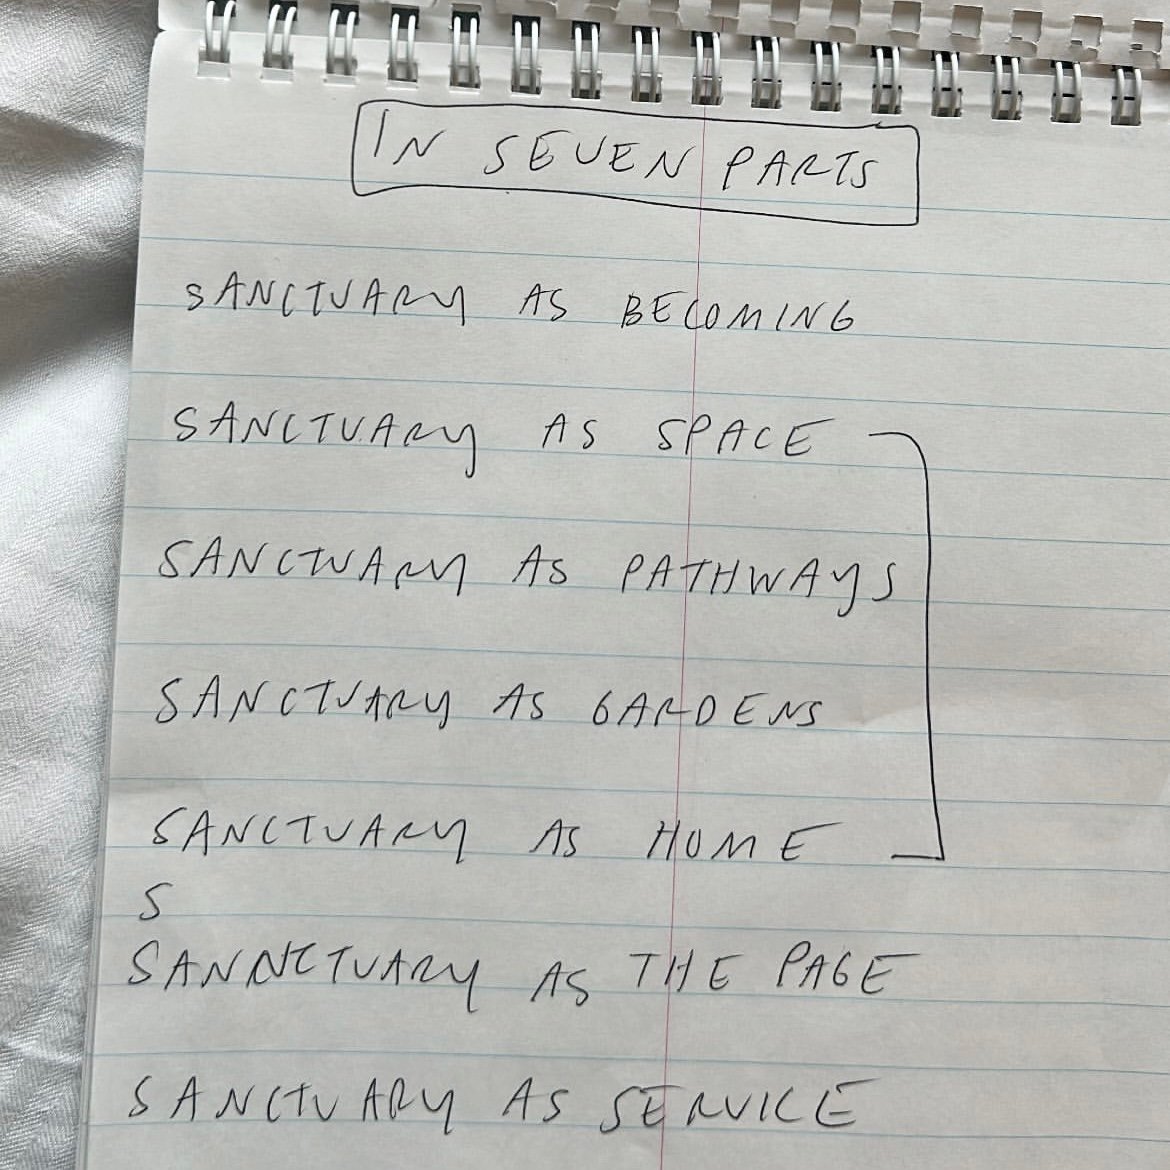 IN SEVEN PARTS
SANCTUARY AS BECOMING
SANCTUARY AS SPACE
SANCTUARY AS PATHWAYS
SANCTUARY AS GARDENS
SANCTUARY AS HOME
S
SANNCTUARY AS THE PAGE
SANCTUARY AS SERVICE